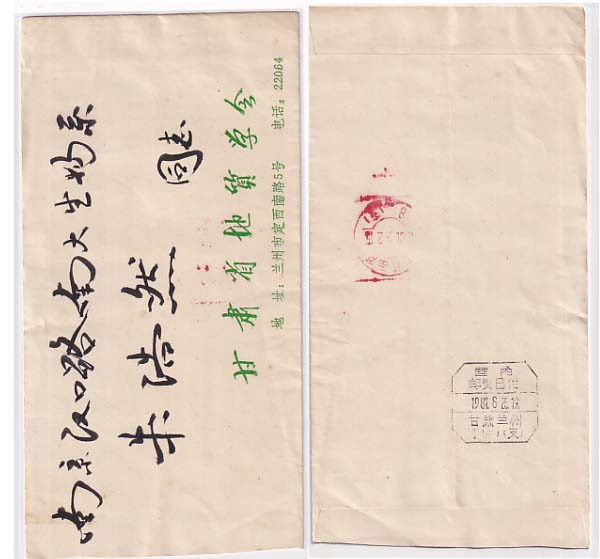 南京汉口路南大生物系
朱浩然
同志
甘肃省地质学会
地 址：兰州市定西南路5号 电话：22064
国内
邮资已付
甘肃兰州